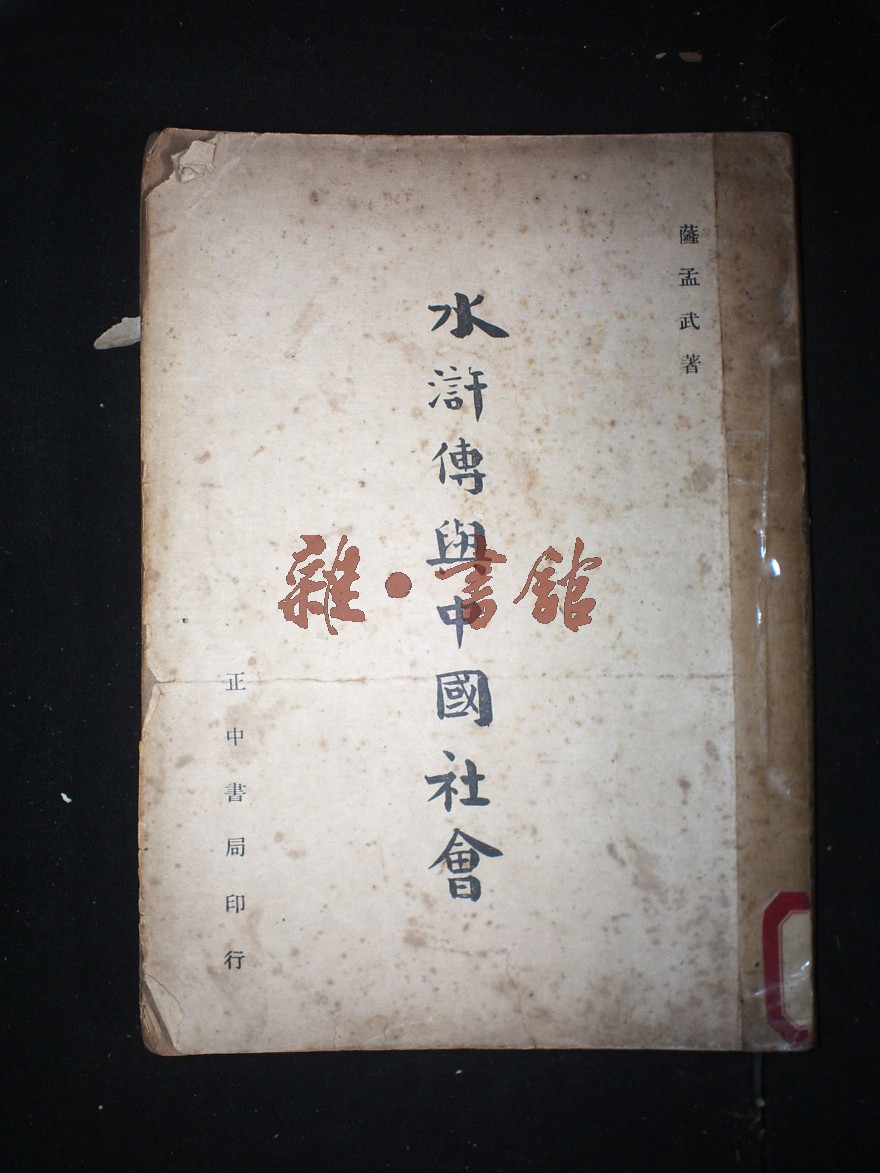 薩孟武著
水滸傳與中國社會
正中書局印行
雜·書館